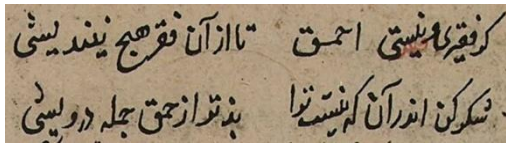 کر فقیری و نیستی احمق تا از آن فقر هیچ نیندیشی
شکر کن اندر آن که نیست ترا بذ تو از حمق جمله درویشی